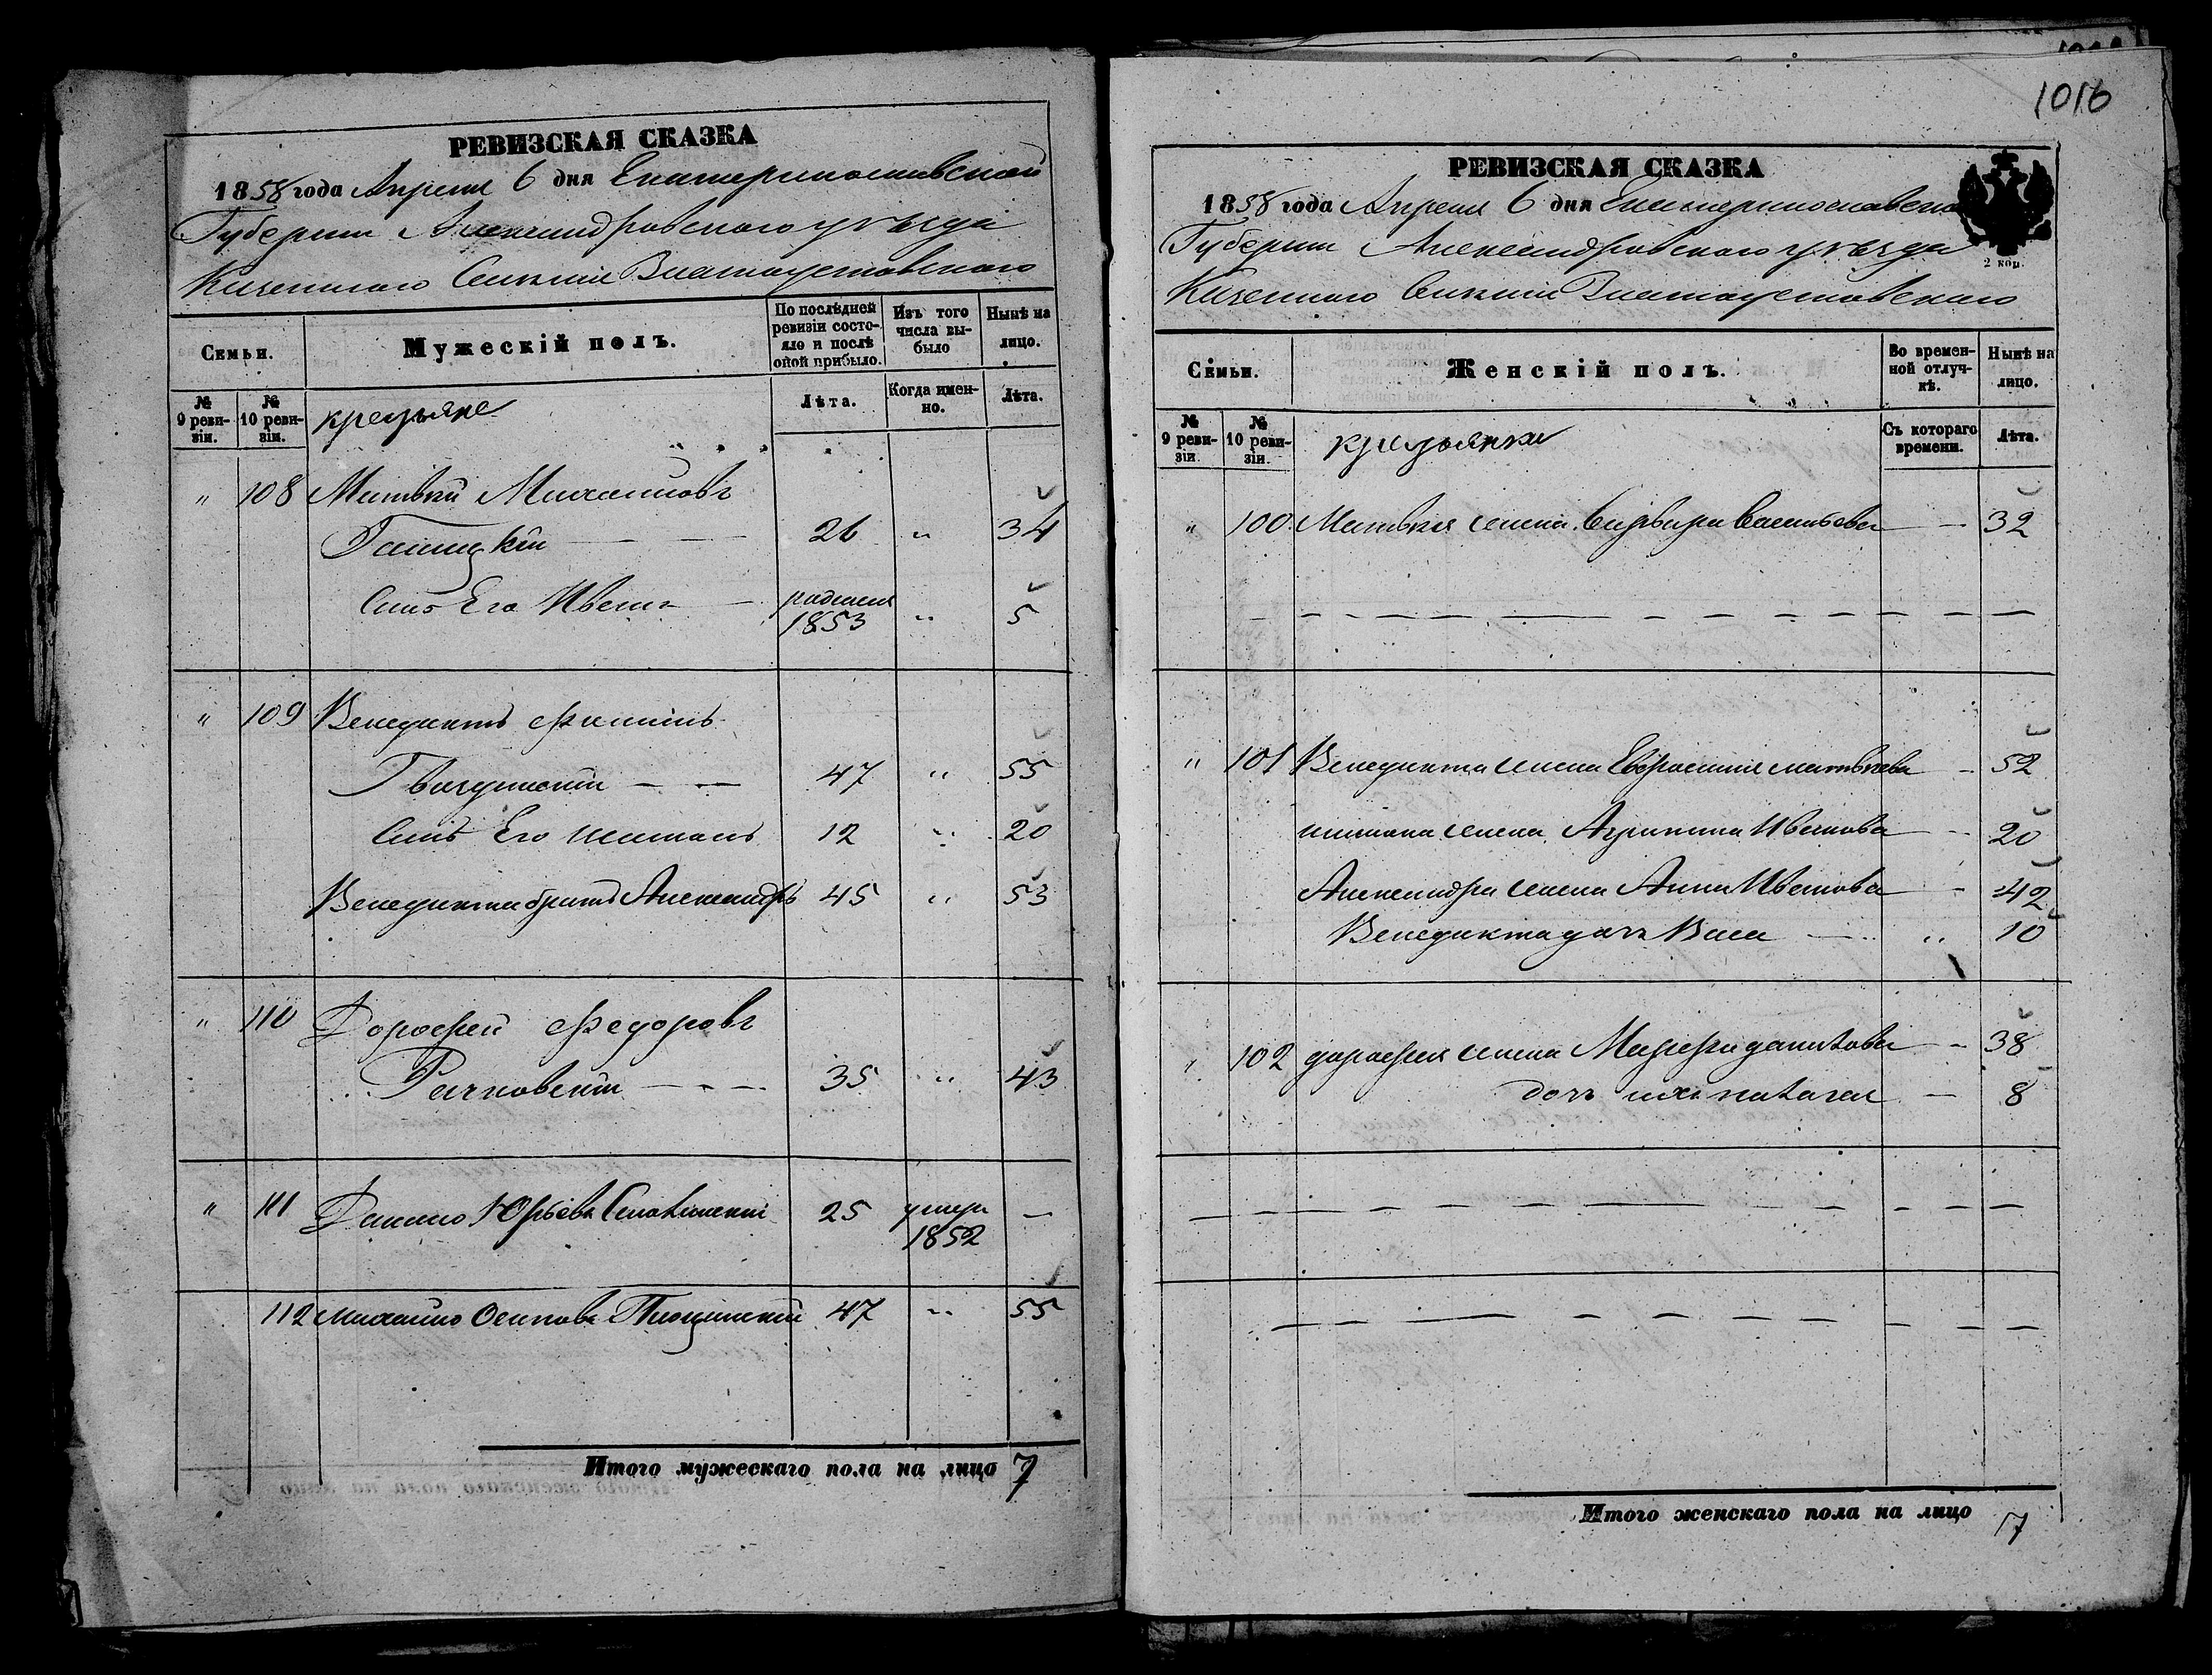 РЕВИЗСКАЯ СКАЗКА
1858 года Апреля 6 дня Екатеринославской
Губернии Александровского уѣзда
Казенного Селения Златоустовского
Семьи.
Мужескій полъ.
По послѣдней ревизіи состояло и послѣ оной прибыло.
Изъ того числа выбыло
Нынѣ на лицо.
№ 9 ревизіи.
№ 10 ревизіи.
крестьяне
Лѣта.
Когда именно.
Лѣта.
" 108 Матвѣй Михайловъ
26 " 34
Сынъ Его Иванъ родился 1853 " 5
" 109 Венедиктъ
47 " 55
Сынъ Его 12 " 20
Венедикта братъ Александръ 45 " 53
" 110 Дорофей Федоровъ
35 " 43
" 111 Юрьевъ 25 умеръ 1852 —
112 Михайло Осиповъ 47 " 55
Итого мужескаго пола на лицо 7
1016
РЕВИЗСКАЯ СКАЗКА
1858 года Апреля 6 дня Екатеринославской
2 коп.
Губернии Александровского уѣзда
Казенного Селения Златоустовского
Семьи.
Женскій полъ.
Во временной отлучкѣ.
Нынѣ на лицо.
№ 9 ревизіи.
№ 10 ревизіи.
крестьянки
Съ котораго времени.
Лѣта.
" 100 Матвѣя жена Варвара Васильева — 32
" 101 Венедикта жена Евфросинія Матвѣева - 52
жена Агрипина Иванова - 20
Александра жена Анна Иванова - 42
Венедикта дочь Васа " 10
" 102 дорофея жена Марфа данилова - 38
дочь ихъ наталія — 8
Итого женскаго пола на лицо 7